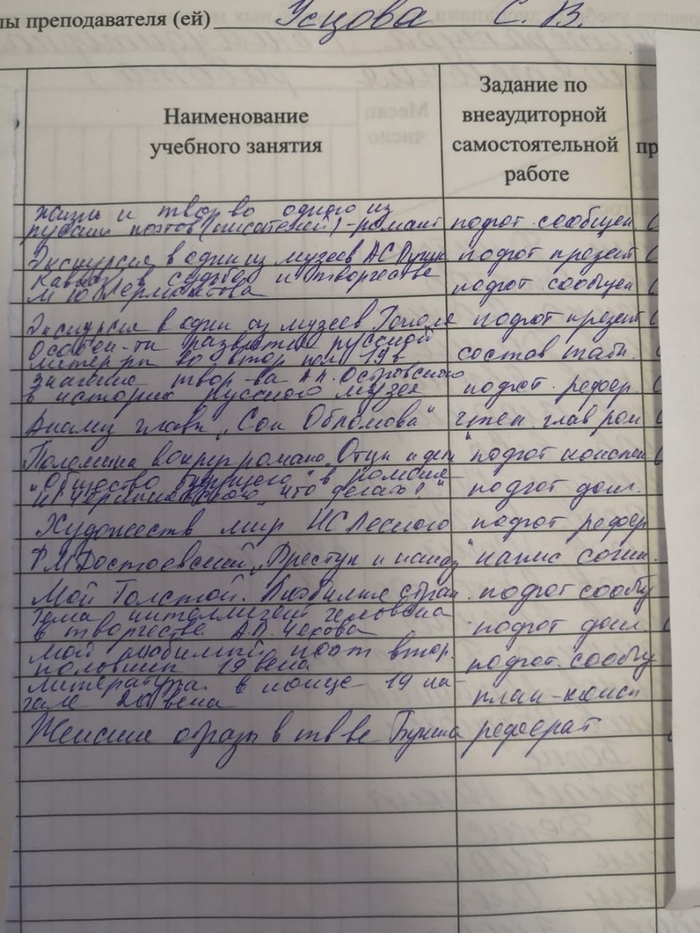 лы преподавателя (ей) Усцова С. В.
Наименование
учебного занятия
Задание по
внеаудиторной
самостоятельной
работе
пр
Жизнь и твор-во одного из
русских поэтов (писателей)-романт подгот. сообщен
Экскурсия в один из музеев АС Пушк подгот презент
Кавказ в судьбе и творчестве
М Ю Лермонтова подгот сообщен
Экскурсия в один из музеев Гоголя подгот презент
Особен-ти развития русской
литер-ры во втор пол 19 в состав табл.
Значение твор-ва А.Н. Островского
в истории русского музея подгот. рефер.
Анализ главы "Сон Обломова" чтен глав ром
Полемика вокруг романа "Отцы и дети" подгот конспек
"Общество будущего" в романе
Н Чернышевского "Что делать?" подгот докл.
Художеств мир НС Лескова подгот рефер
Ф М Достоевский "Преступ и наказ" напис сочин.
Мой Толстой. Любимые стран. подгот сообщ
Тема интеллигент человека
в творчестве А.П. Чехова подгот докл
Мой любимый поэт втор.
половины 19 века подгот. сообщ
Литература в конце 19 на-
чале 20 века план-консп
Женские образы в тв-ве Бунина реферат